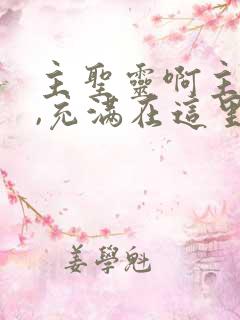 主聖靈啊主
,充滿在這里
姜學魁